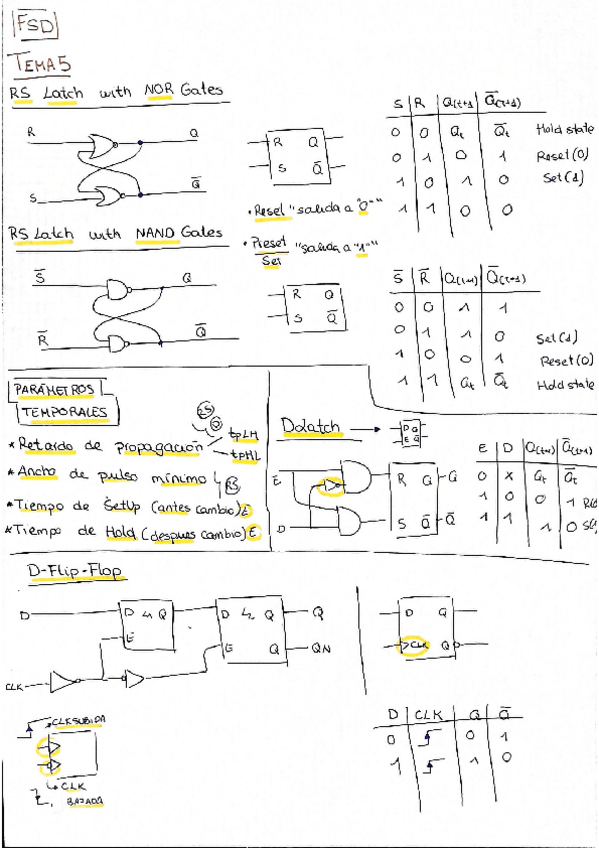 FSD
TEMA 5
RS Latch with NOR Gates
R
Q
S
Q̅
R Q
S Q̅
S R Q(t+1) Q̅(t+1)
0 0 Qt Q̅t Hold state
0 1 0 1 Reset (0)
1 0 1 0 Set (1)
1 1 0 0
• Reset "salida a "0""
• Preset "salida a "1""
Set
RS Latch with NAND Gates
S̅
Q
R̅
Q̅
R Q
S Q̅
S̅ R̅ Q(t+1) Q̅(t+1)
0 0 1 1
0 1 1 0 Set (1)
1 0 0 1 Reset (0)
1 1 Qt Q̅t Hold state
PARÁMETROS
TEMPORALES
* Retardo de propagación
tpLH
tpHL
* Ancho de pulso mínimo
RS
* Tiempo de SetUp (antes cambio) E
* Tiempo de Hold (despues cambio) E
D latch
D Q
E Q
E
D
R Q
Q
S Q̅
Q̅
E D Q(t+1) Q̅(t+1)
0 X Qt Q̅t
1 0 0 1
1 1 1 0
D-Flip-Flop
D
D L1 Q
E
D L2 Q
E Q
Q
QN
CLK
D Q
>CLK Q
CLK SUBIDA
CLK
BAJADA
D CLK Q Q̅
0 0 1
1 1 0